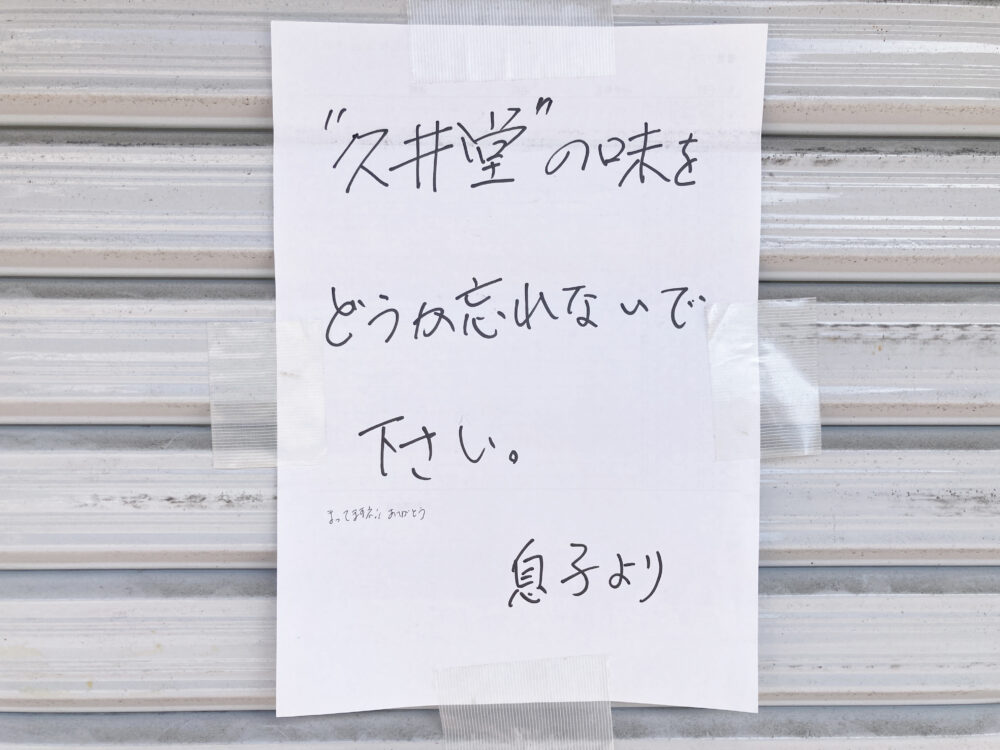 "久井堂"の味を
どうか忘れないで
下さい。
まってます!! ありがとう
息子より